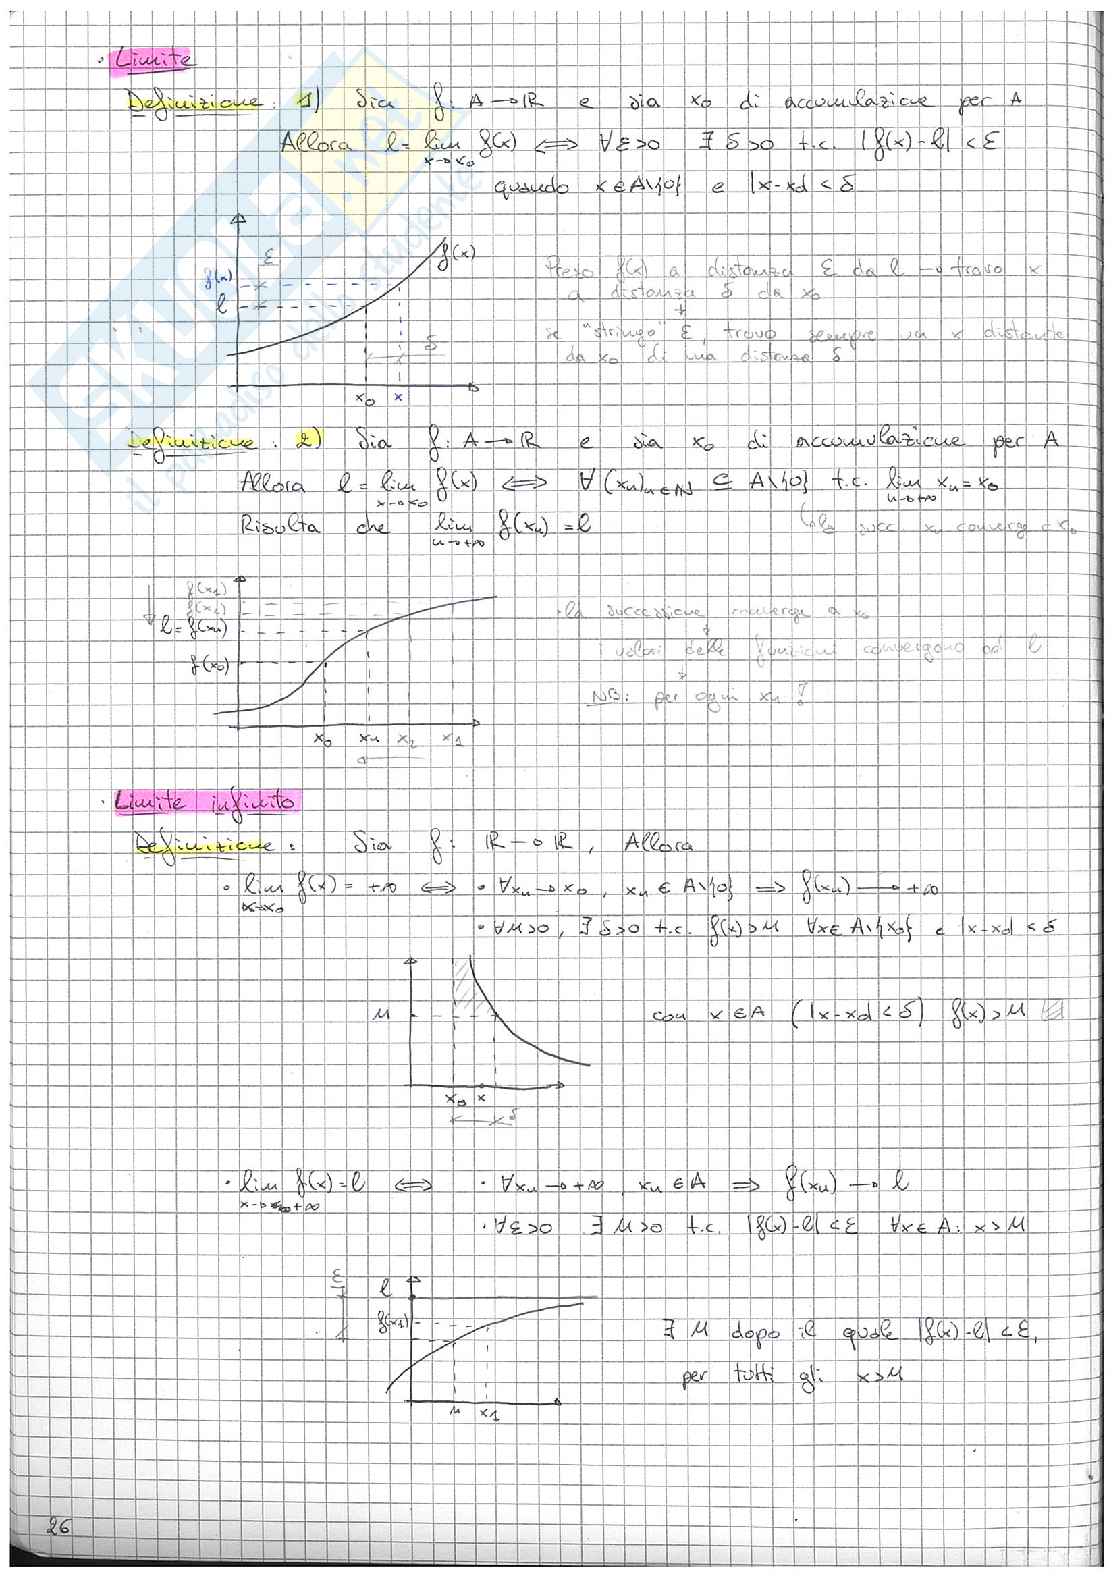 · Limite
Definizione: 1) Sia f: A → ℝ e sia x₀ di accumulazione per A
Allora l = lim f(x) ⟺ ∀ε>0 ∃ δ>0 t.c. |f(x)-l| < ε
x→x₀
quando x∈A\{0} e |x-x₀| < δ
f(x) ε f(x)
l
δ
x₀ x
Preso f(x) a distanza ε da l → trovo x
a distanza δ da x₀
↓
se "stringo" ε, trovo sempre un x distante
da x₀ di una distanza δ
Definizione: 2) Sia f: A → ℝ e sia x₀ di accumulazione per A
Allora l = lim f(x) ⟺ ∀ (xₙ)ₙ∈ℕ ⊆ A\{0} t.c. lim xₙ = x₀
x→x₀ n→+∞
Risulta che lim f(xₙ) = l ↳ la succ xₙ converge a x₀
n→+∞
f(x₁)
f(x₂)
l = f(xₙ)
f(x₀)
x₀ xₙ x₂ x₁
· la successione converge a x₀
↓
i valori delle funzioni convergono ad l
↓
NB: per ogni xₙ!
· Limite infinito
Definizione: Sia f: ℝ → ℝ, Allora
· lim f(x) = +∞ ⟺ · ∀xₙ → x₀, xₙ ∈ A\{0} ⟹ f(xₙ) → +∞
x→x₀
· ∀M>0, ∃ δ>0 t.c. f(x)>M ∀x∈ A\{x₀} e |x-x₀| < δ
M
x₀ x
δ
con x∈A (|x-x₀| < δ) f(x) > M
· lim f(x) = l ⟺ · ∀xₙ → +∞, xₙ ∈ A ⟹ f(xₙ) → l
x→+∞
· ∀ε>0 ∃ M>0 t.c. |f(x)-l| < ε ∀x∈A: x>M
ε l
f(x₁)
M x₁
∃ M dopo il quale |f(x)-l| < ε,
per tutti gli x>M
26
SKUOLA.net
il paradiso dello studente